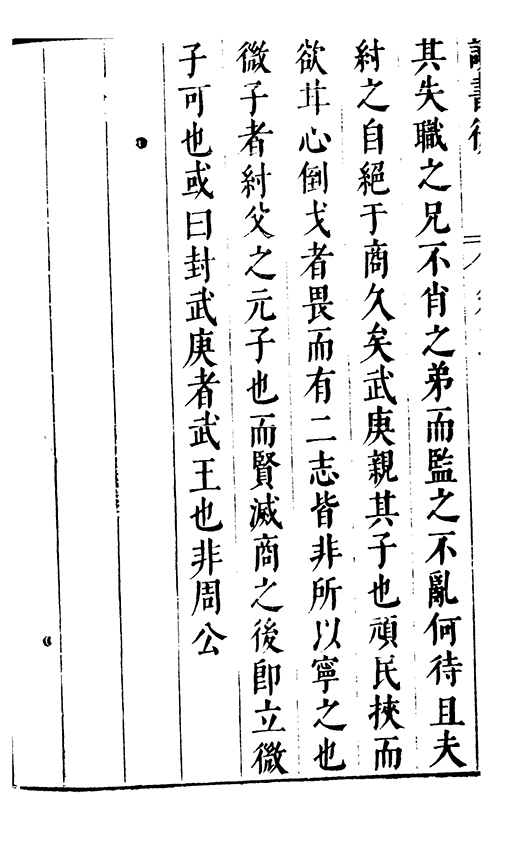 讀書後
其失職之兄不肖之弟而監之不亂何待且夫
紂之自絕于商久矣武庚親其子也頑民挾而
欲甘心倒戈者畏而有二志皆非所以寧之也
微子者紂父之元子也而賢滅商之後卽立微
子可也或曰封武庚者武王也非周公